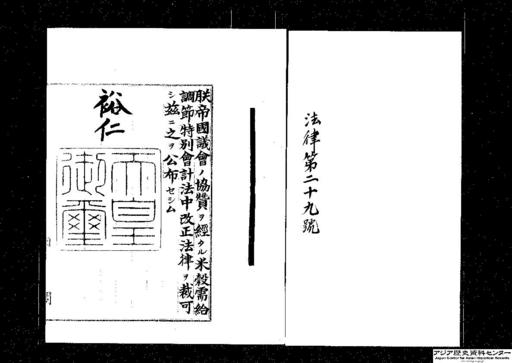 法律第二十九號
朕帝國議會ノ協贊ヲ經タル米穀需給
調節特別會計法中改正法律ヲ裁可
シ茲ニ之ヲ公布セシム
裕仁
天皇
御璽
アジア歴史資料センター
Japan Center for Asian Historical Records